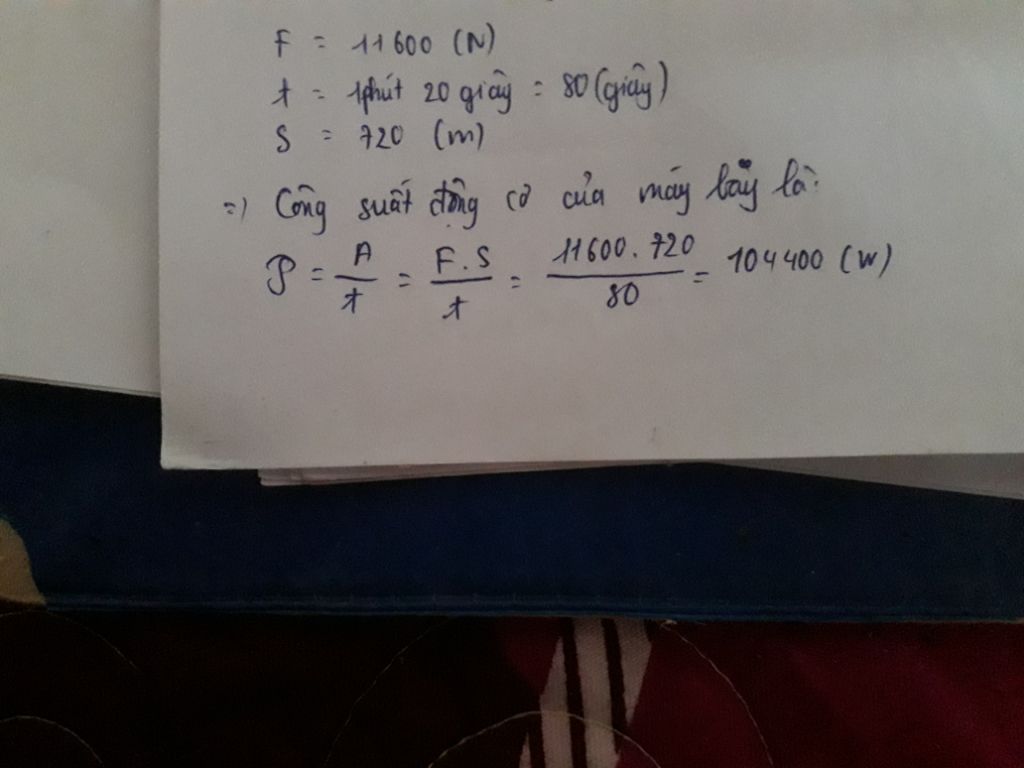 F = 11600 (N)
t = 1phút 20 giây = 80 (giây)
S = 720 (m)
=) Công suất động cơ của máy bay là:
P = A/t = F.S/t = 11600.720/80 = 104400 (W)